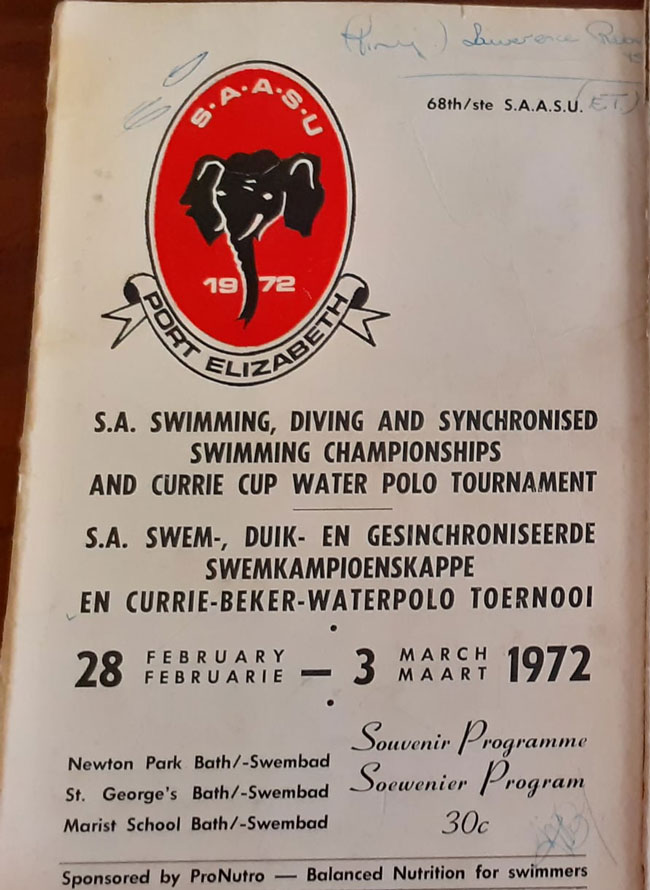 Lawrence
68th/ste S.A.A.S.U. (E.T.)
S·A·A·S·U
1972
PORT ELIZABETH
S.A. SWIMMING, DIVING AND SYNCHRONISED
SWIMMING CHAMPIONSHIPS
AND CURRIE CUP WATER POLO TOURNAMENT
S.A. SWEM-, DUIK- EN GESINCHRONISEERDE
SWEMKAMPIOENSKAPPE
EN CURRIE-BEKER-WATERPOLO TOERNOOI
28 FEBRUARY FEBRUARIE — 3 MARCH MAART 1972
Souvenir Programme
Soewenier Program
30c
Newton Park Bath/-Swembad
St. George's Bath/-Swembad
Marist School Bath/-Swembad
Sponsored by ProNutro — Balanced Nutrition for swimmers